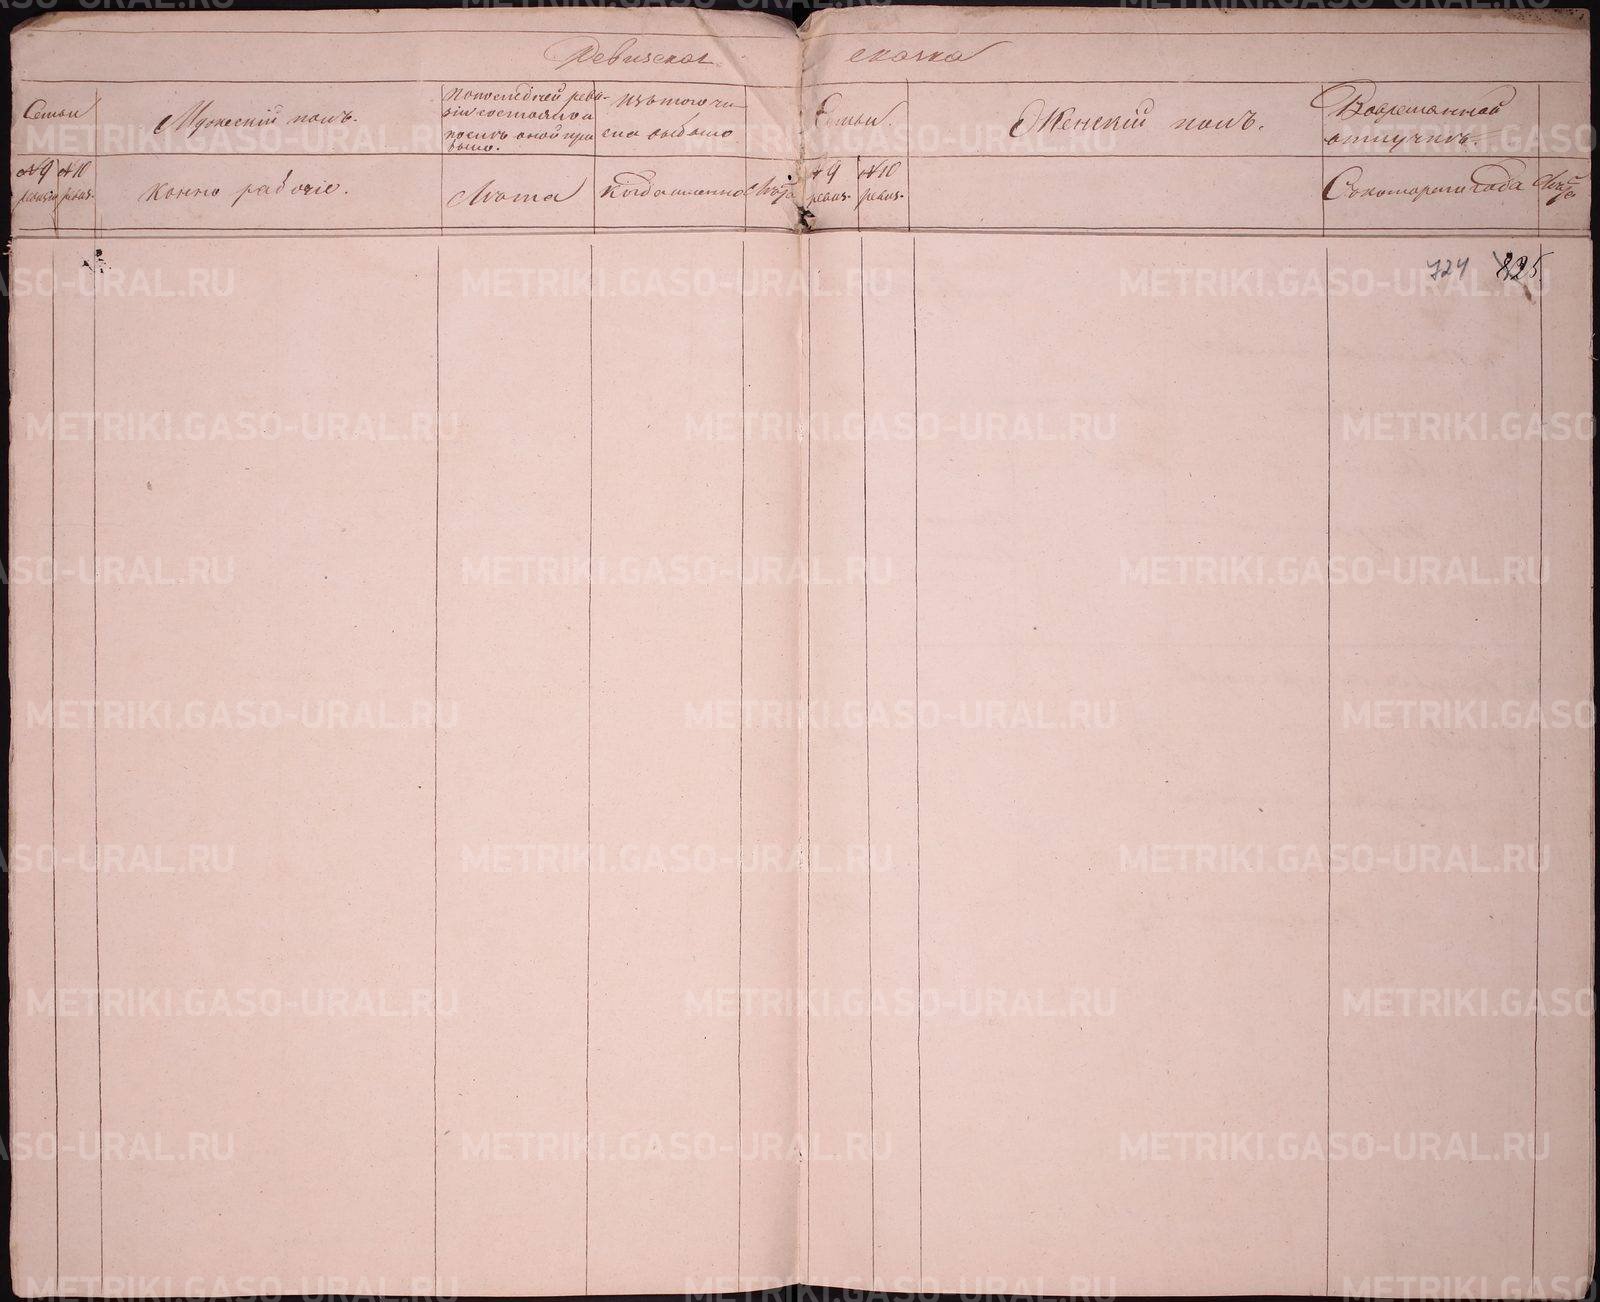 Ревизская сказка
Семьи
Мужескій полъ.
Попоследней реви-
зіи состояло а
послѣ оной при
было.
Изъ того чи
сла выбыло
Семьи.
Женскій полъ.
Вовременной
отлучкѣ.
№ 9 ревизіи
№ 10 ревиз.
конно рабочіе.
Лѣта
Когда именно
Лѣта
№ 9 ревиз.
№ 10 ревиз.
Скотораго года
Лѣта
724 825
METRIKI.GASO-URAL.RU